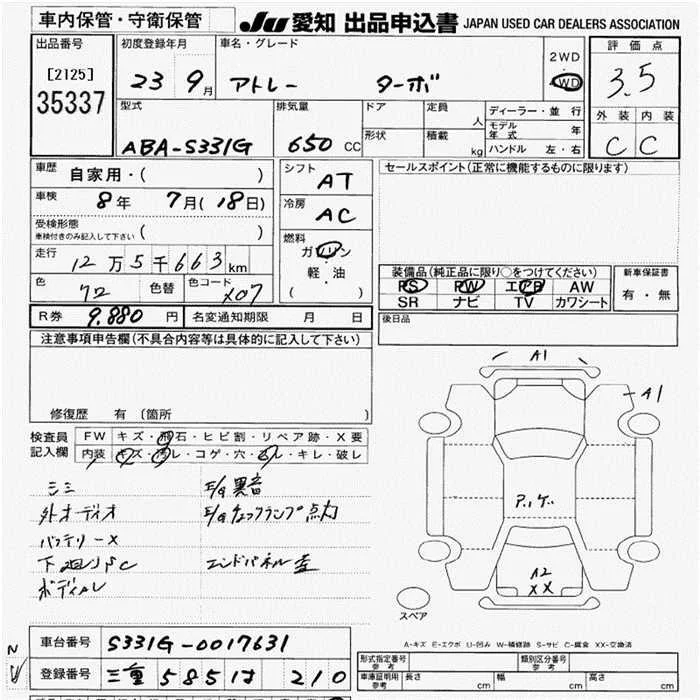 車内保管・守衛保管
JU 愛知 出品申込書 JAPAN USED CAR DEALERS ASSOCIATION
出品番号
[2125]
35337
初度登録年月
23 9月
車名・グレード
アトレー ターボ
2WD
・
4WD
評価点
3.5
外装 内装
C C
型式
ABA-S331G
排気量
650 CC
ドア
形状
定員
人
積載
kg
ディーラー・並行
モデル年式 年
ハンドル 左・右
車歴
自家用・( )
車検
8年 7月(18日)
受検形態
車検付きのみ記入して下さい ( )
走行
12万5千663km
色
クロ
色替
色コード
X07
シフト
AT
冷房
AC
燃料
ガソリン
・
軽・油
( )
セールスポイント(正常に機能するものに限ります)
装備品(純正品に限り○をつけてください)
PS PW エアB AW
SR ナビ TV カワシート
新車保証書
有・無
R券 9.880 円
名変通知期限 月 日
後日品
注意事項申告欄(不具合内容等は具体的に記入して下さい)
修復歴 有 (箇所 )
検査員
記入欄
FW キズ・飛石・ヒビ割・リペア跡・X要
内装 キズ・汚レ・コゲ・穴・スレ・キレ・破レ
シミ
外オーディオ
バッテリーX
E/G異音
E/Gチェックランプ点灯
A1
A1
A2
XX
スペア
A-キズ E-エクボ U-凹み W-補修跡 S-サビ C-腐食 XX-交換済
車台番号 S331G-0017631
登録番号 三重 585 は 210
形式指定番号
参考
類別区分番号
参考
車庫証明用
参考
長さ cm
幅 cm
高さ cm